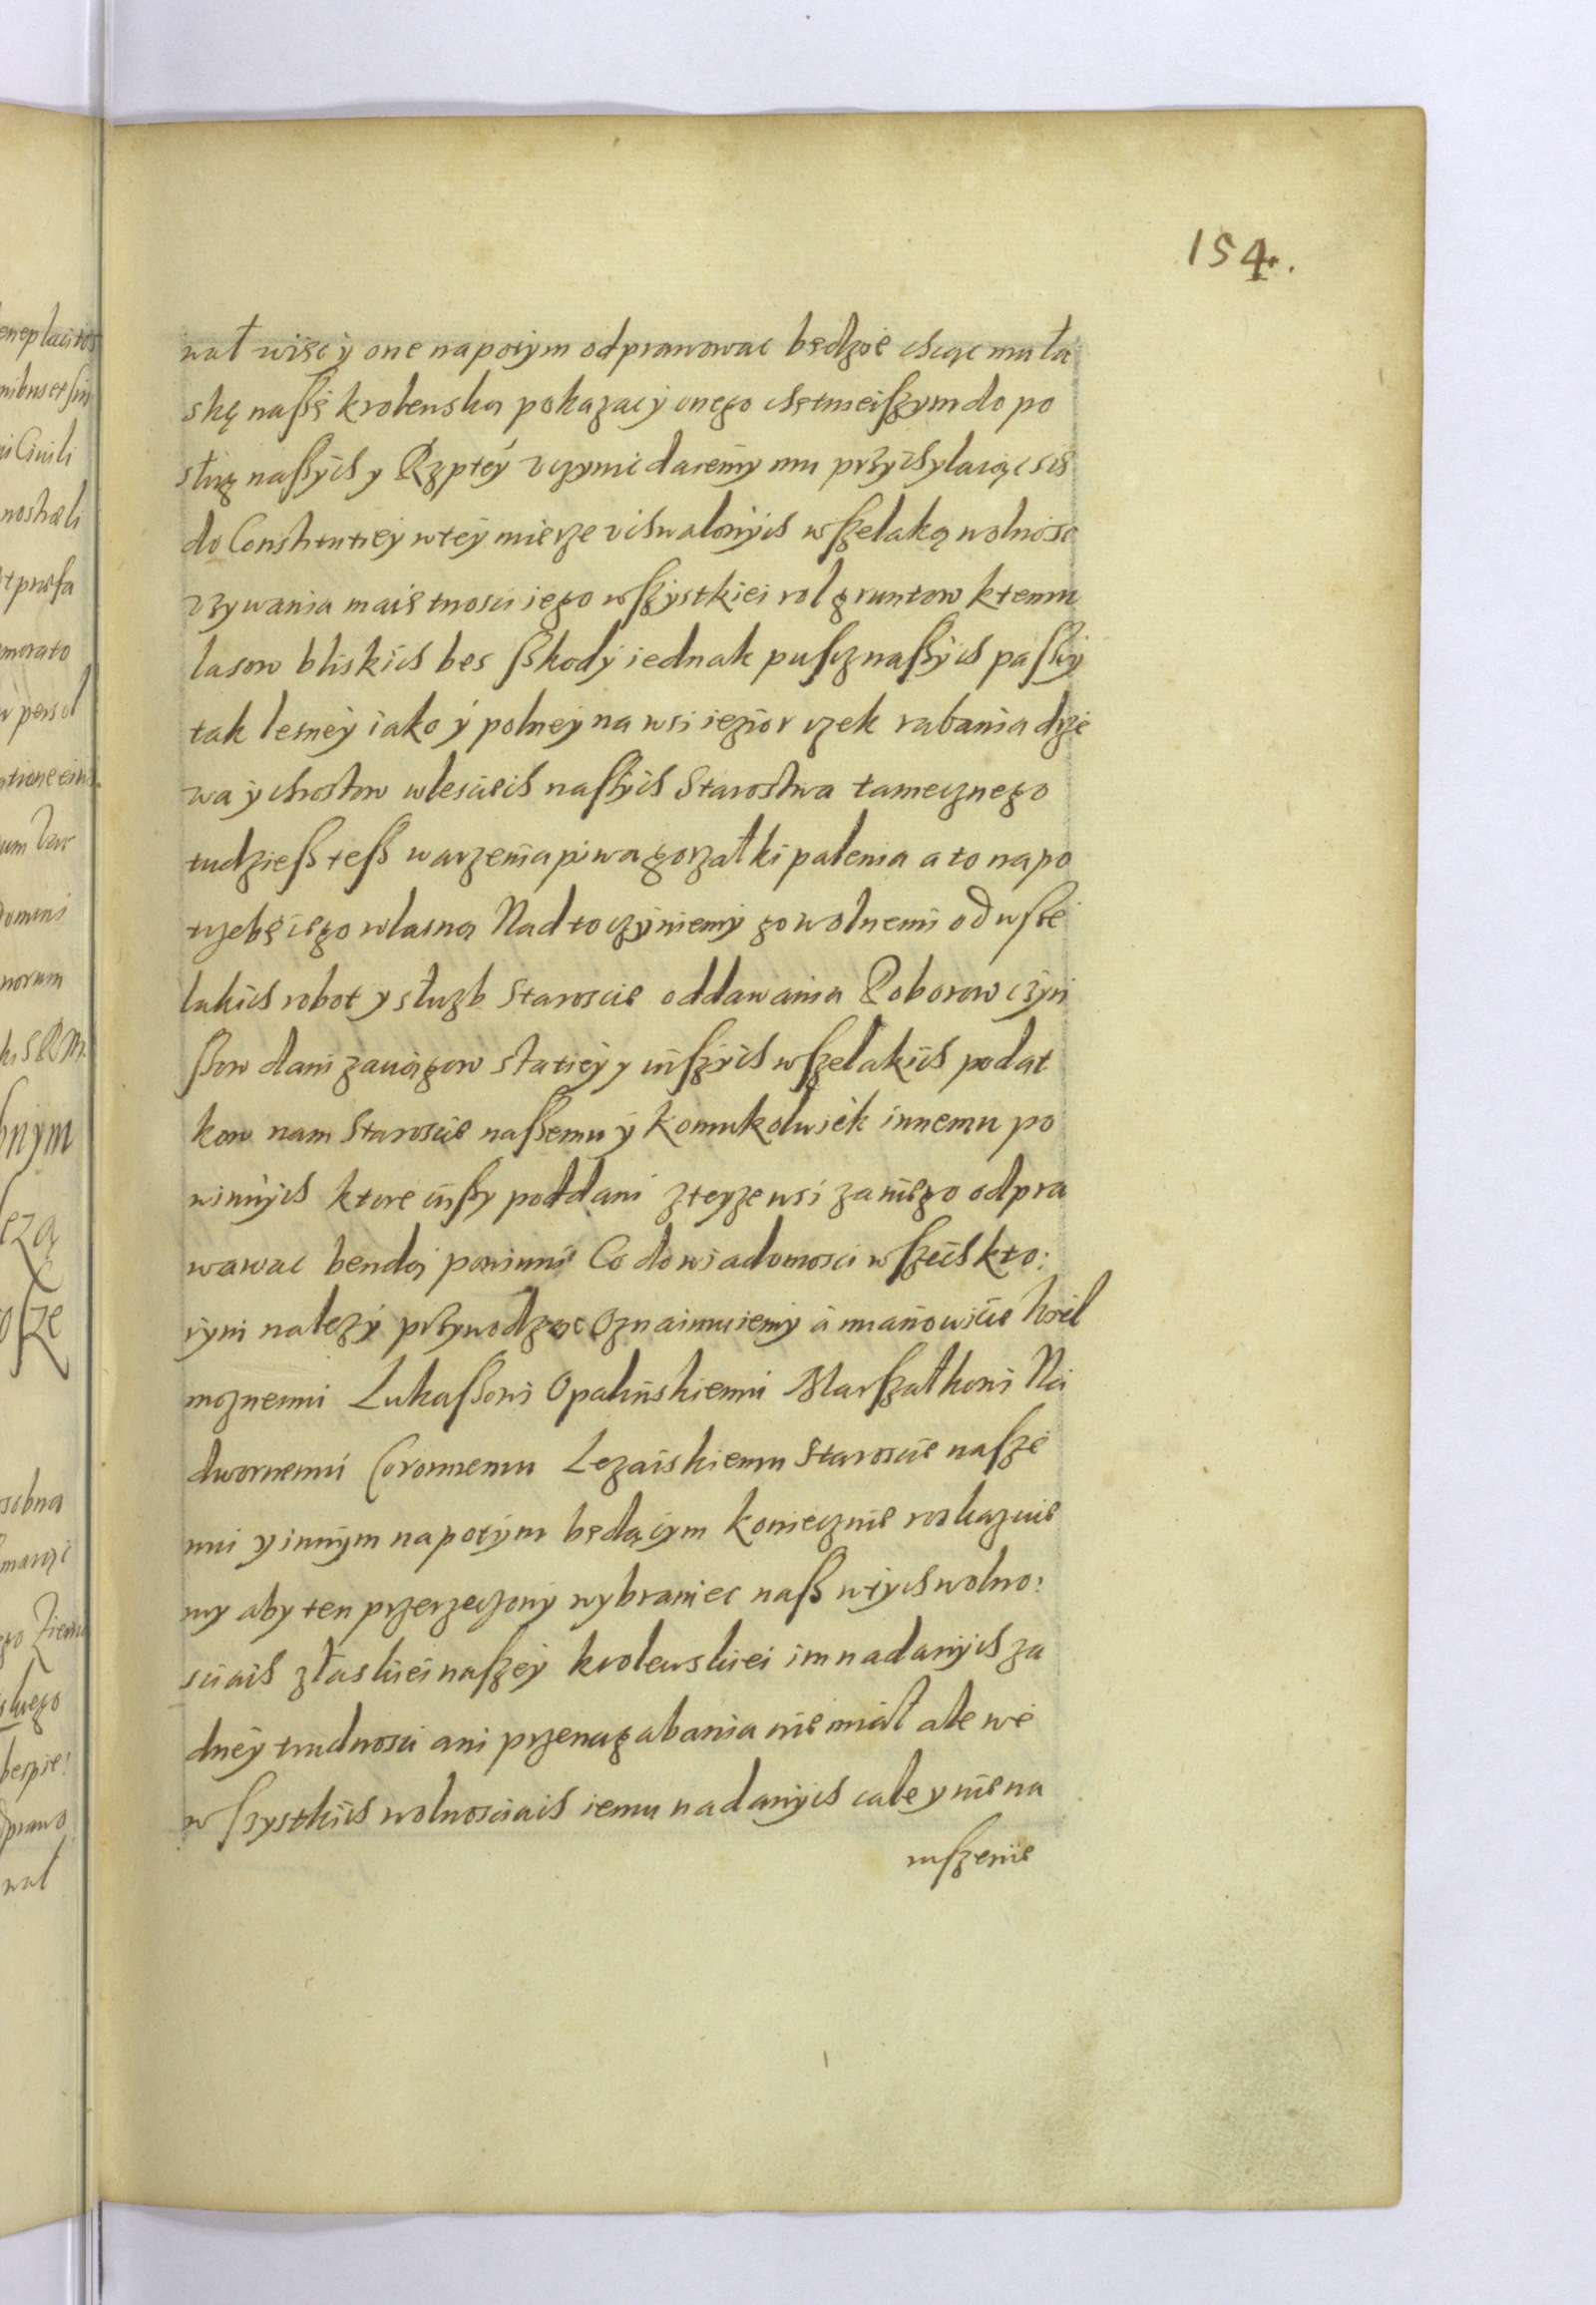 154.
wał więc y one napotym odprawowac będzie chcąc mu ła
skę naßę krolewską pokazac y onego chętnieiszym do po
sług naßych y Rzptey uczynic daiemy mu przychylaiąc się
do Constitutiey w tey mierze uchwalonych wszelaką wolnosc
uzywania maiętnosci iego wszystkiei rol gruntow k temu
lasow bliskich bes ßkody iednak puscz naßych paßy
tak lesney iako y polney na wsi iezior rzek rabania drze
wa y chrostow w lesiech naßych Starostwa tamecznego
tudzieß teß warzenia piwa gorzałki palenia a to na po
trzebę iego wlasną Nad to czyniemy go wolnemi od wße
lakich robot y służb Staroscie oddawania Poborow czyn
ßow dani zaciągow statiey y inszych wszelakich podat
kow nam Staroscie naßemu y komukolwiek innemu po
winnych ktore inßy poddani z teyze wsi za niego odpra
wawac bendą powinni Co do wiadomosci wszech kto:
rym nalezy przywodząc oznaimuiemy a mianowicie Wiel
moznemu Lukaßowi Opalinskiemu Marszałkowi Na
dwornemu Coronnemu Lezaiskiemu Staroscie nasze
mu y innym napotym będącym koniecznie roskazuie
my aby ten przerzeczony wybraniec naß w tych wolno:
sciach z łaskiei naszey krolewskiei im nadanych za
dney trudnosci ani przenagabania nie miał ale we
wszystkich wolnosciach iemu nadanych cale y niena
ruszenie